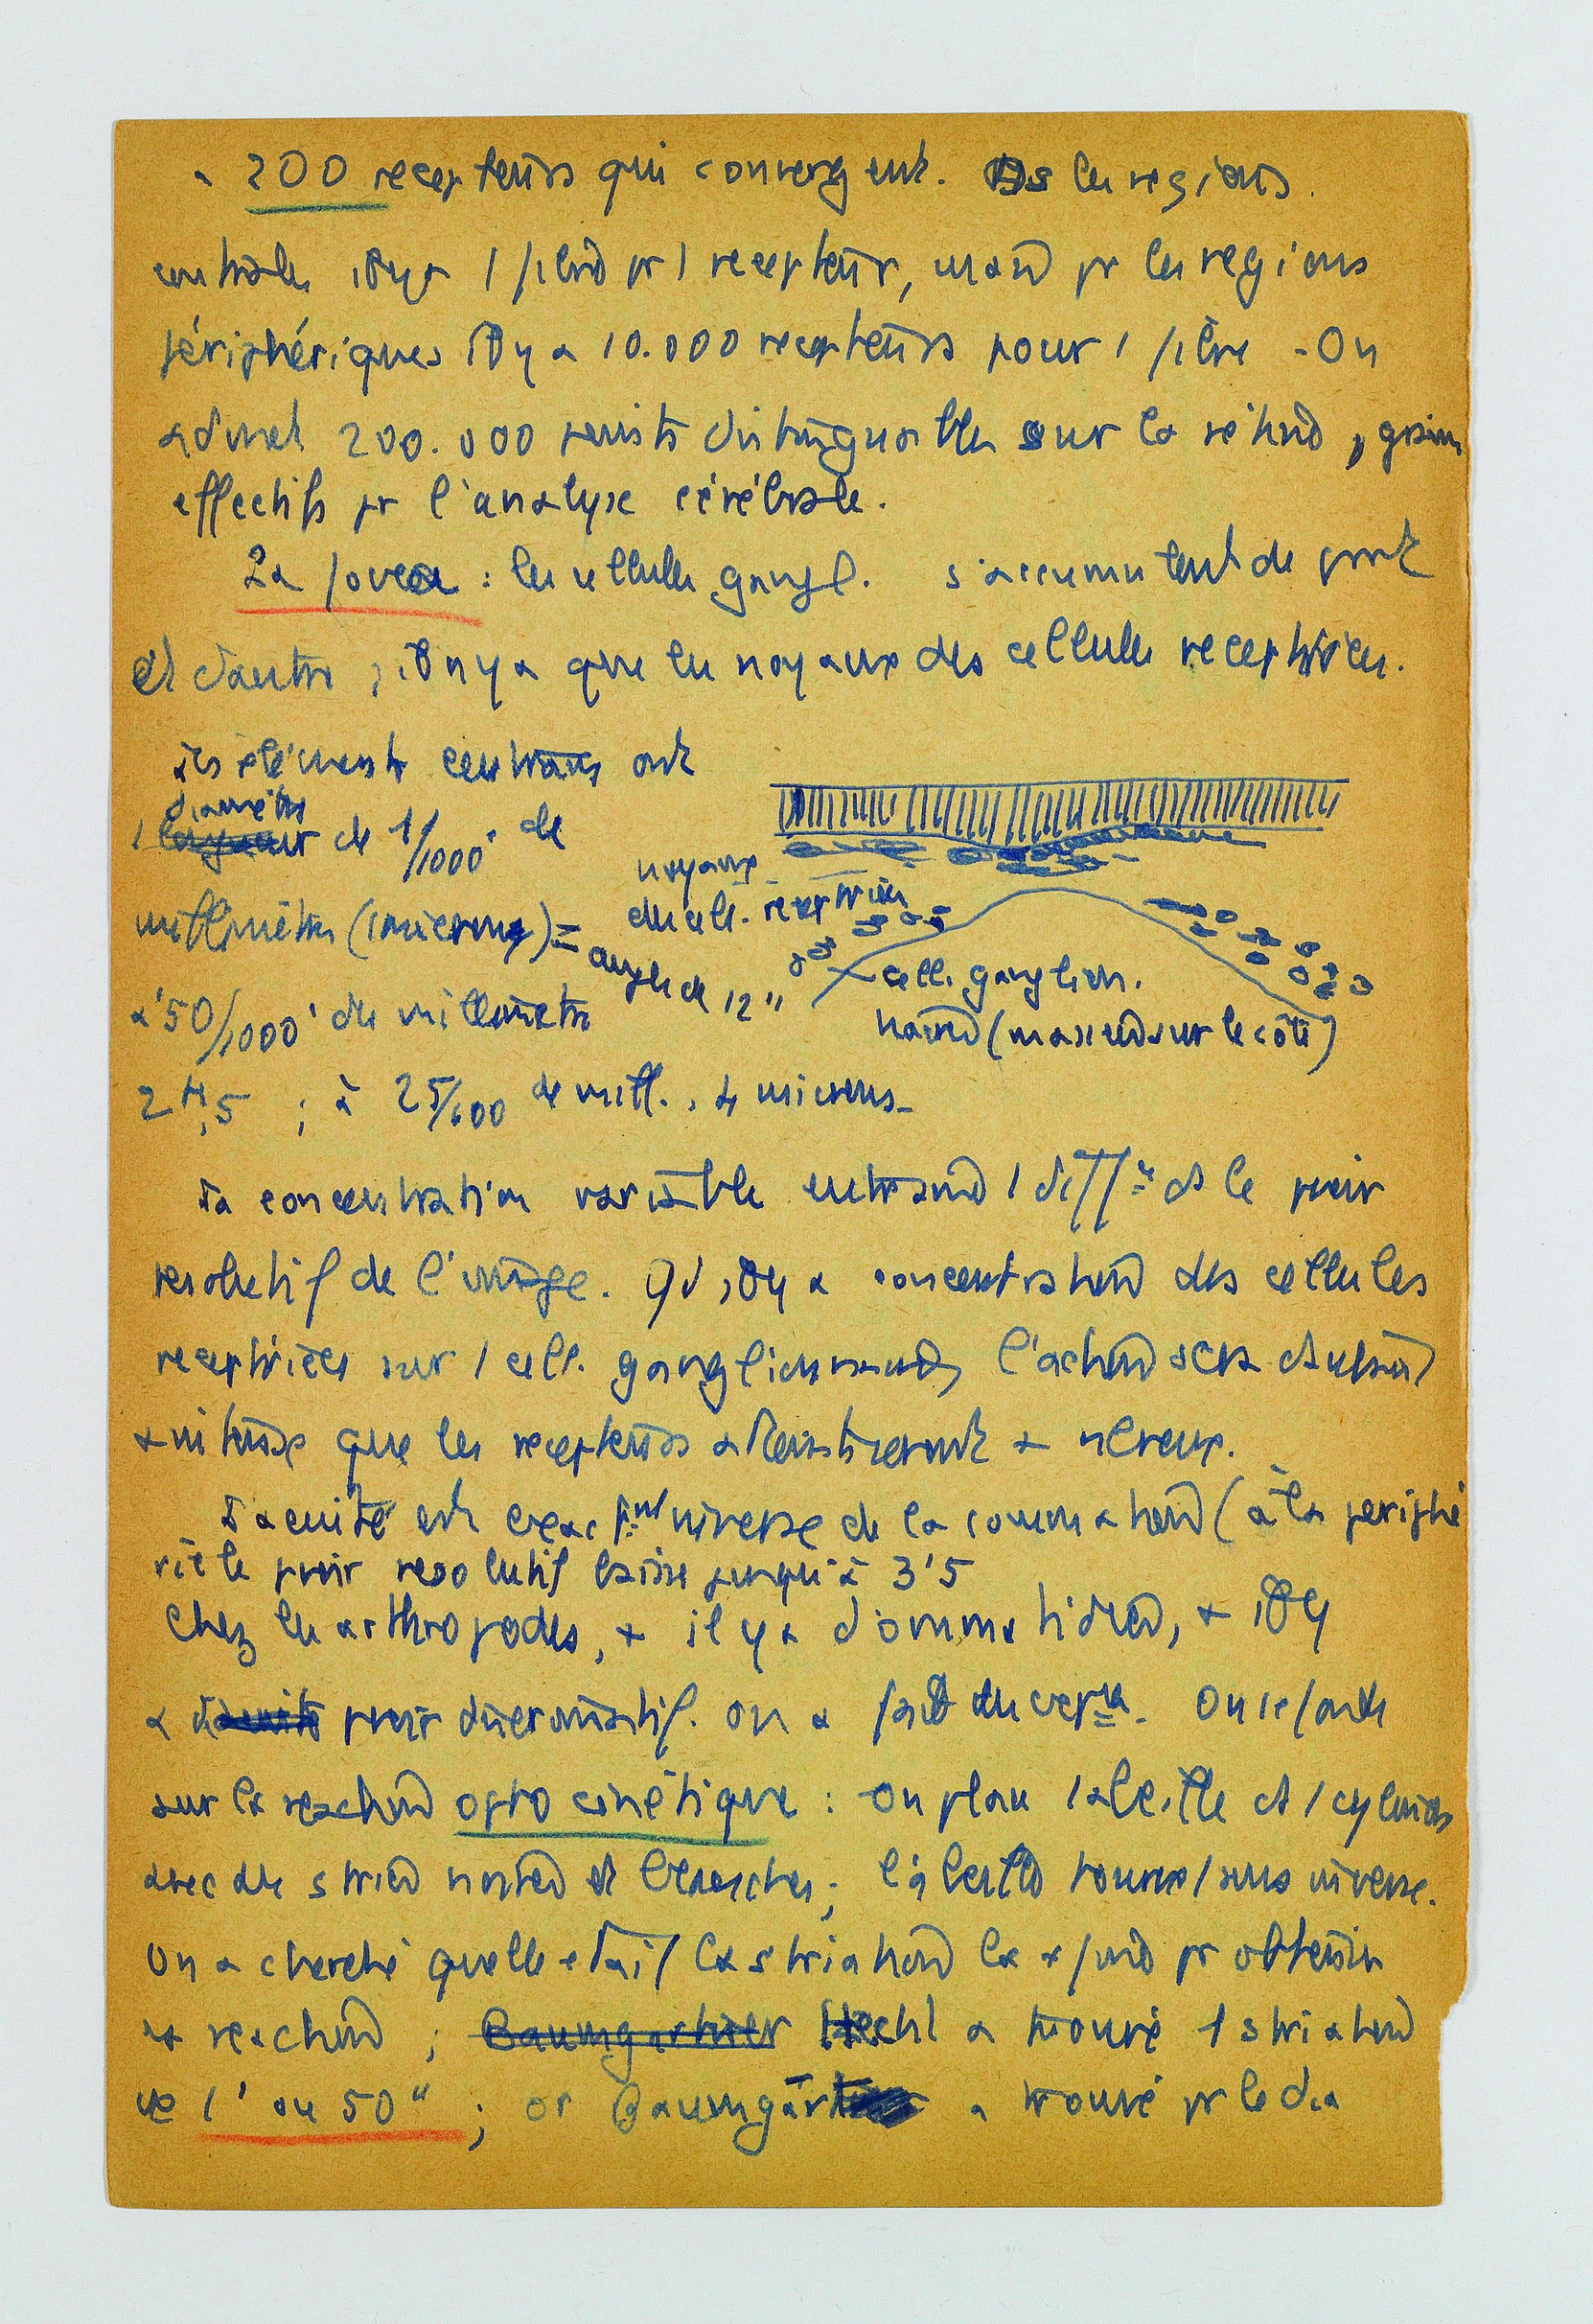 200 recepteurs qui convergent. Ds les regions
centrales il y a 1 fibre pr 1 recepteur, mais pr les regions
périphériques il y a 10.000 recepteurs pour 1 fibre - On
admet 200.000 points distinguables sur la rétine, grains
effectifs pr l'analyse cérébrale.
La fovea : les cellules gangl. s'accumulent de part
et d'autre ; il n'y a que les noyaux des cellules receptrices.
les éléments centraux ont
diamètre
1 de 1/1000' de
millimètre (1 micron) =
angle de 12"
à 50/1000' de millimètre
2 μ,5 ; à 25/100 de mill., 4 microns -
noyaux
des cell. receptrices
cell. ganglion.
(masses sur le côté)
La concentration variable entraine 1 diff ce ds le pouvoir
resolutif de l'image. Qd il y a concentration des cellules
receptrices sur 1 cell. ganglionnaire, l'action sera d'autant
+ intense que les recepteurs + nbreux.
L'acuité est exactmt inverse de la sommation (à la périphé
rie le pouvoir resolutif baisse jusqu'à 3'5
Chez les arthropodes, + il y a d'ommatidies, + il y
a pouvoir discriminatif. On a fait des expces. On se fonde
sur la reaction opto cinétique : On place 1 abeille ds 1 cylindre
avec des stries noires et blanches ; l'abeille tourne / sens inverse.
On a cherché quelle etait la striation la + fine pr obtenir
la reaction ; Baumgartner Hecht a trouvé 1 striation
de 1' ou 50" ; or Baumgärt a trouvé pr le dia